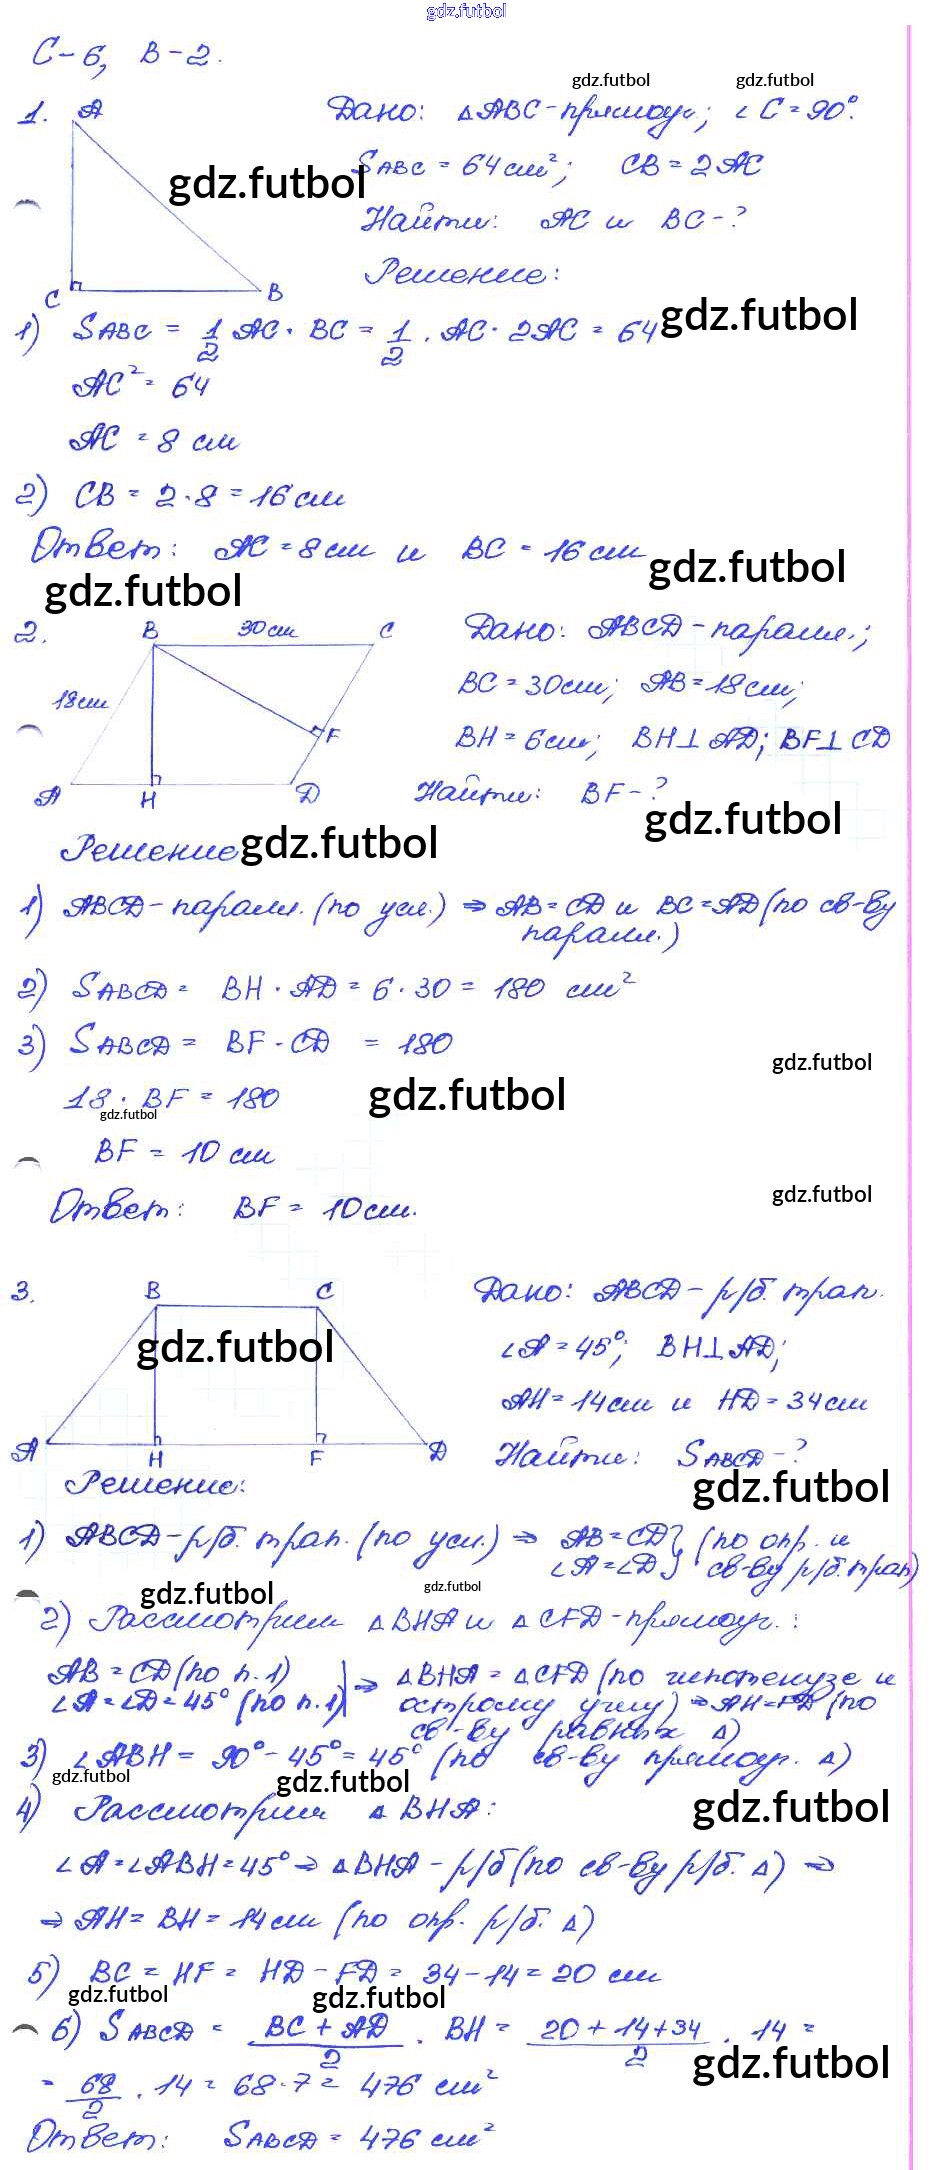 gdz.futbol
С-6, В-2.
gdz.futbol gdz.futbol
1. A Дано: △ABC-прямоуг.; ∠C=90°.
gdz.futbol SABC = 64 см²; CB = 2AC
Найти: AC и BC-?
Решение:
C B
1) SABC = 1/2 AC · BC = 1/2 · AC · 2AC = 64 gdz.futbol
AC² = 64
AC = 8 см
2) CB = 2·8 = 16 см
Ответ: AC = 8 см и BC = 16 см gdz.futbol
gdz.futbol
2. B 30 см C Дано: ABCD-паралл.;
18 см BC = 30 см; AB = 18 см;
F BH = 6 см; BH⊥AD; BF⊥CD
A H D Найти: BF-?
gdz.futbol
Решение gdz.futbol
1) ABCD-паралл. (по усл.) ⇒ AB = CD и BC = AD (по св-ву
паралл.)
2) SABCD = BH · AD = 6 · 30 = 180 см²
3) SABCD = BF · CD = 180
gdz.futbol
18 · BF = 180 gdz.futbol
gdz.futbol
BF = 10 см
gdz.futbol
Ответ: BF = 10 см.
3. B C Дано: ABCD-р/б. трап.
gdz.futbol ∠A = 45°; BH⊥AD;
AH = 14 см и HD = 34 см
A H F D Найти: SABCD-?
Решение: gdz.futbol
1) ABCD-р/б. трап. (по усл.) ⇒ AB = CD } (по опр. и
∠A = ∠D } св-ву р/б. трап)
gdz.futbol gdz.futbol
2) Рассмотрим △BHA и △CFD-прямоуг.:
AB = CD (по п.1) } ⇒ △BHA = △CFD (по гипотенузе и
∠A = ∠D = 45° (по п.1) } острому углу) ⇒ AH = FD (по
св-ву равных △)
3) ∠ABH = 90° - 45° = 45° (по св-ву прямоуг. △)
gdz.futbol gdz.futbol
4) Рассмотрим △BHA: gdz.futbol
∠A = ∠ABH = 45° ⇒ △BHA - р/б (по св-ву р/б. △) ⇒
⇒ AH = BH = 14 см (по опр. р/б. △)
5) BC = HF = HD - FD = 34 - 14 = 20 см
gdz.futbol gdz.futbol
6) SABCD = (BC + AD)/2 · BH = (20 + 14 + 34)/2 · 14 =
gdz.futbol
= 68/2 · 14 = 68 · 7 = 476 см²
Ответ: SABCD = 476 см²